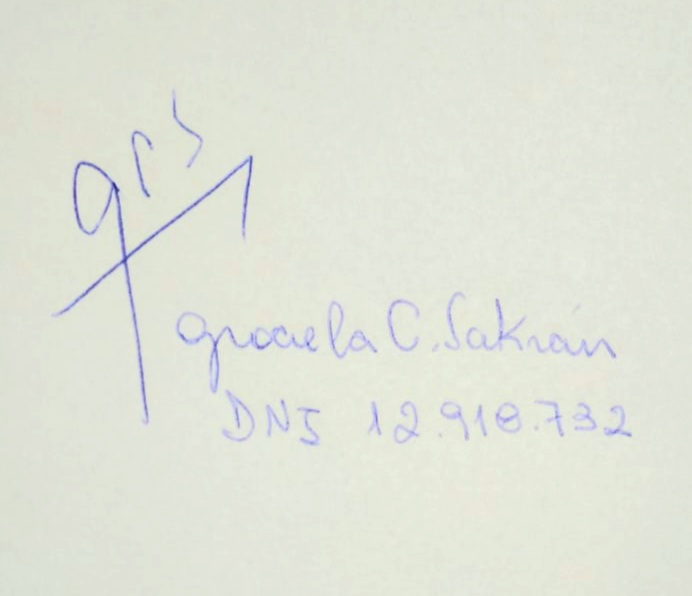 Graciela C. Sakran
DNI 12.910.732